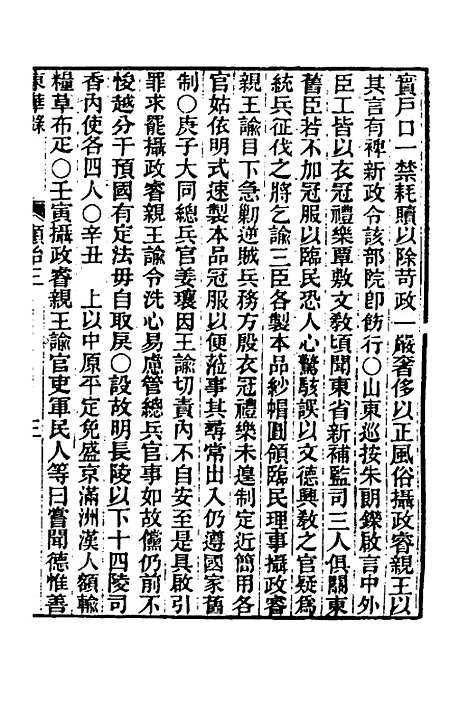 實戶口一禁耗贖以除苛政一嚴奢侈以正風俗攝政睿親王以
其言有裨新政令該部院卽飭行○山東巡按朱朗鑅啟言中外
臣工皆以衣冠禮樂覃敷文敎頃聞東省新補監司三人俱關東
舊臣若不加冠服以臨民恐人心驚駭誤以文德興敎之官疑爲
統兵征伐之將乞諭三臣各製本品紗帽圓領臨民理事攝政睿
親王諭目下急勦逆賊兵務方殷衣冠禮樂未遑制定近簡用各
官姑依明式速製本品冠服以便蒞事其尋常出入仍遵國家舊
制○庚子大同總兵官姜瓖因王諭切責內不自安至是具啟引
罪求罷攝政睿親王諭令洗心易慮管總兵官事如故儻仍前不
悛越分干預國有定法毋自取戾○設故明長陵以下十四陵司
香內使各四人○辛丑　上以中原平定免盛京滿洲漢人額輸
糧草布疋○壬寅攝政睿親王諭官吏軍民人等曰嘗聞德惟善
東華錄　順治三　三